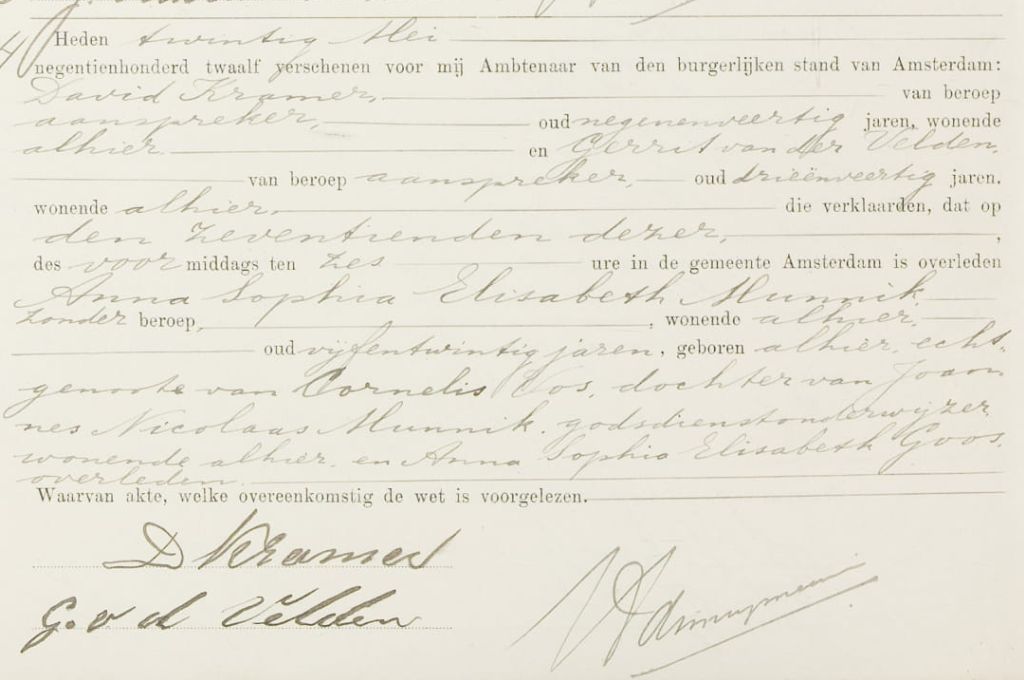 Heden twintig Mei
negentienhonderd twaalf verschenen voor mij Ambtenaar van den burgerlijken stand van Amsterdam:
David Kramer, van beroep
aanspreker, oud negenenveertig jaren, wonende
alhier en Gerrit van der Velden,
van beroep aanspreker, oud drieënveertig jaren,
wonende alhier, die verklaarden, dat op
den zeventienden dezer,
des voormiddags ten zes ure in de gemeente Amsterdam is overleden
Anna Sophia Elisabeth Munnik
zonder beroep, wonende alhier,
oud vijfentwintig jaren, geboren alhier, echt-
genoote van Cornelis Vos, dochter van Joan-
nes Nicolaas Munnik, godsdienstonderwijzer,
wonende alhier, en Anna Sophia Elisabeth Goos,
overleden.
Waarvan akte, welke overeenkomstig de wet is voorgelezen.
D Kramer
G. v d Velden